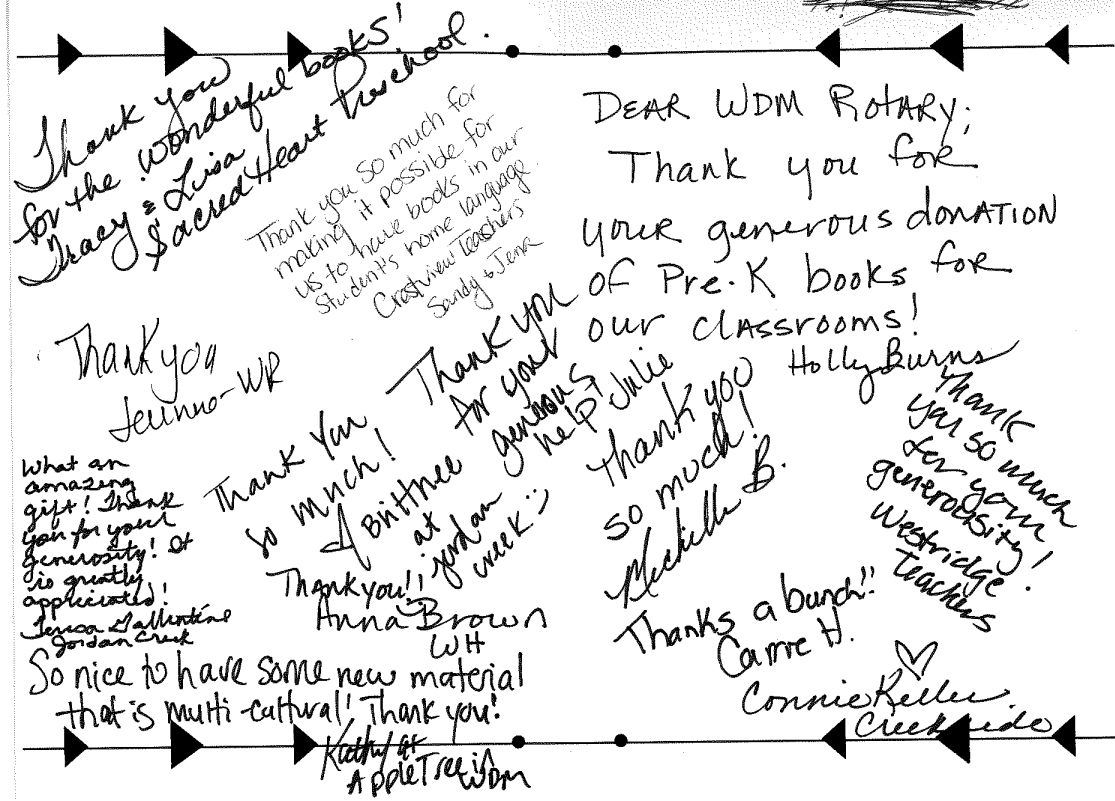 Thank you
for the wonderful books!
Tracy & Lisa
Sacred Heart Preschool.
Thank you so much for
making it possible for
us to have books in our
student's home language
Crestview Teachers
Sandy & Jenna
DEAR WDM ROTARY,
Thank you for
your generous donation
of Pre-K books for
our classrooms!
Holly Burns
Thank you
WR
Thank you
for your
generous
help Julie
Thank you
so much!
Brittnee
at
jordan
creek :)
Thank you
so much!
Michelle B.
Thank
you so much
for your
generousity!
Westridge
Teachers
What an
amazing
gift! Thank
you for your
generosity! It
is greatly
appriciated!
Teresa Gallentine
Jordan Creek
Thank you!!
Anna Brown
WH
Thanks a bunch!!
Carrie H.
Connie Keller
Creekside
So nice to have some new material
that is multi-cultural! Thank you!
Kathy at
AppleTree in
WDM